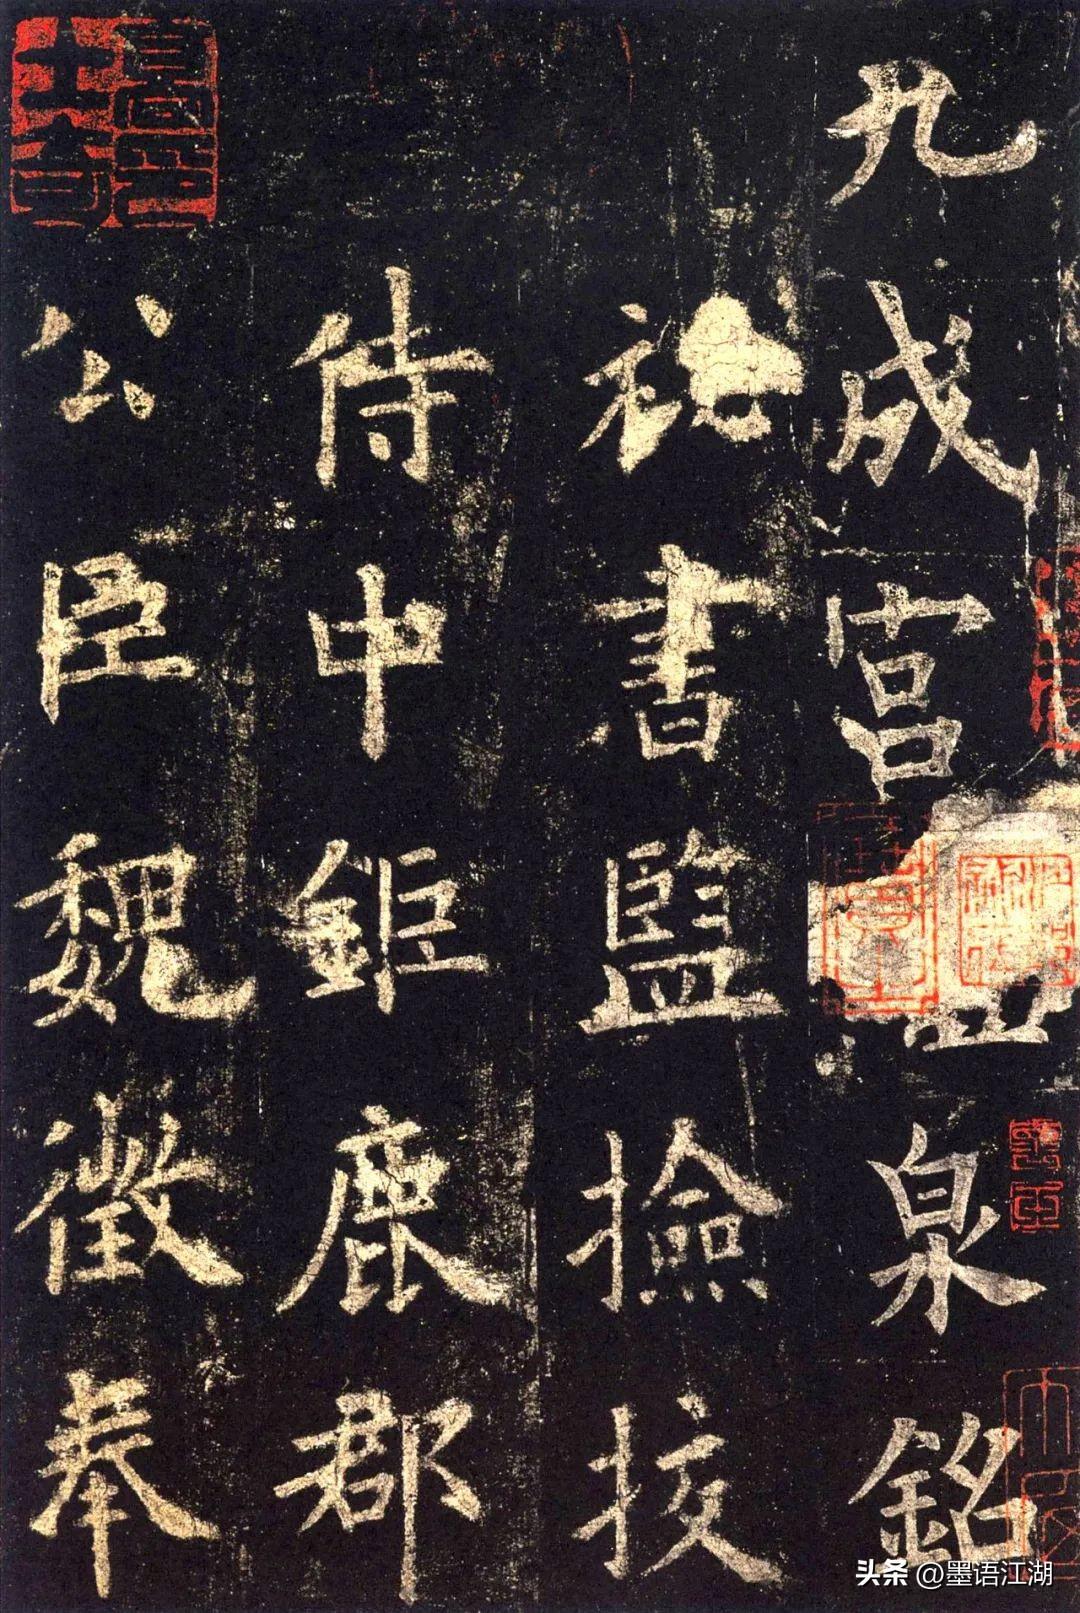 九成宮泉銘
書監撿挍
侍中鉅鹿郡
公臣魏徵奉
头条 @墨语江湖